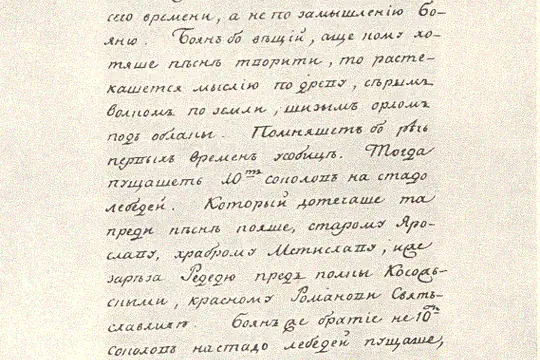 сего времени, а не по замышленію Бо-
яню. Боянъ бо вѣщій, аще кому хо-
тяше пѣснь творити, то расте-
кашется мыслію по древу, сѣрымъ
волкомъ по земли, шизымъ орломъ
подъ облакы. Помняшеть бо рѣчь
первыхъ временъ усобицѣ. Тогда
пущашеть 10ть соколовъ на стадо
лебедей. Который дотечаше та
преди пѣснь пояше, старому Яро-
славу, храброму Мстиславу, иже
зарѣза Редедю предъ полкы Касожь-
скыми, красному Романови Святъ-
славличю. Боянъ же братіе не 10ть
соколовъ на стадо лебедей пущаше,